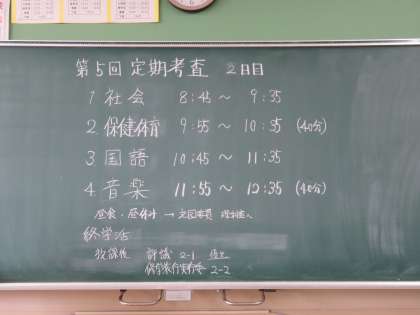 第5回 定期考査 2日目
1. 社会 8:45 〜 9:35
2. 保健体育 9:55 〜 10:35 (40分)
3. 国語 10:45 〜 11:35
4. 音楽 11:55 〜 12:35 (40分)
昼食・昼休み →
終学活
放課後 評議 2-1
2-2